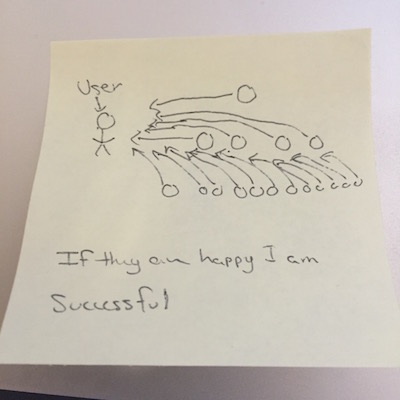 User
If they are happy I am
Successful